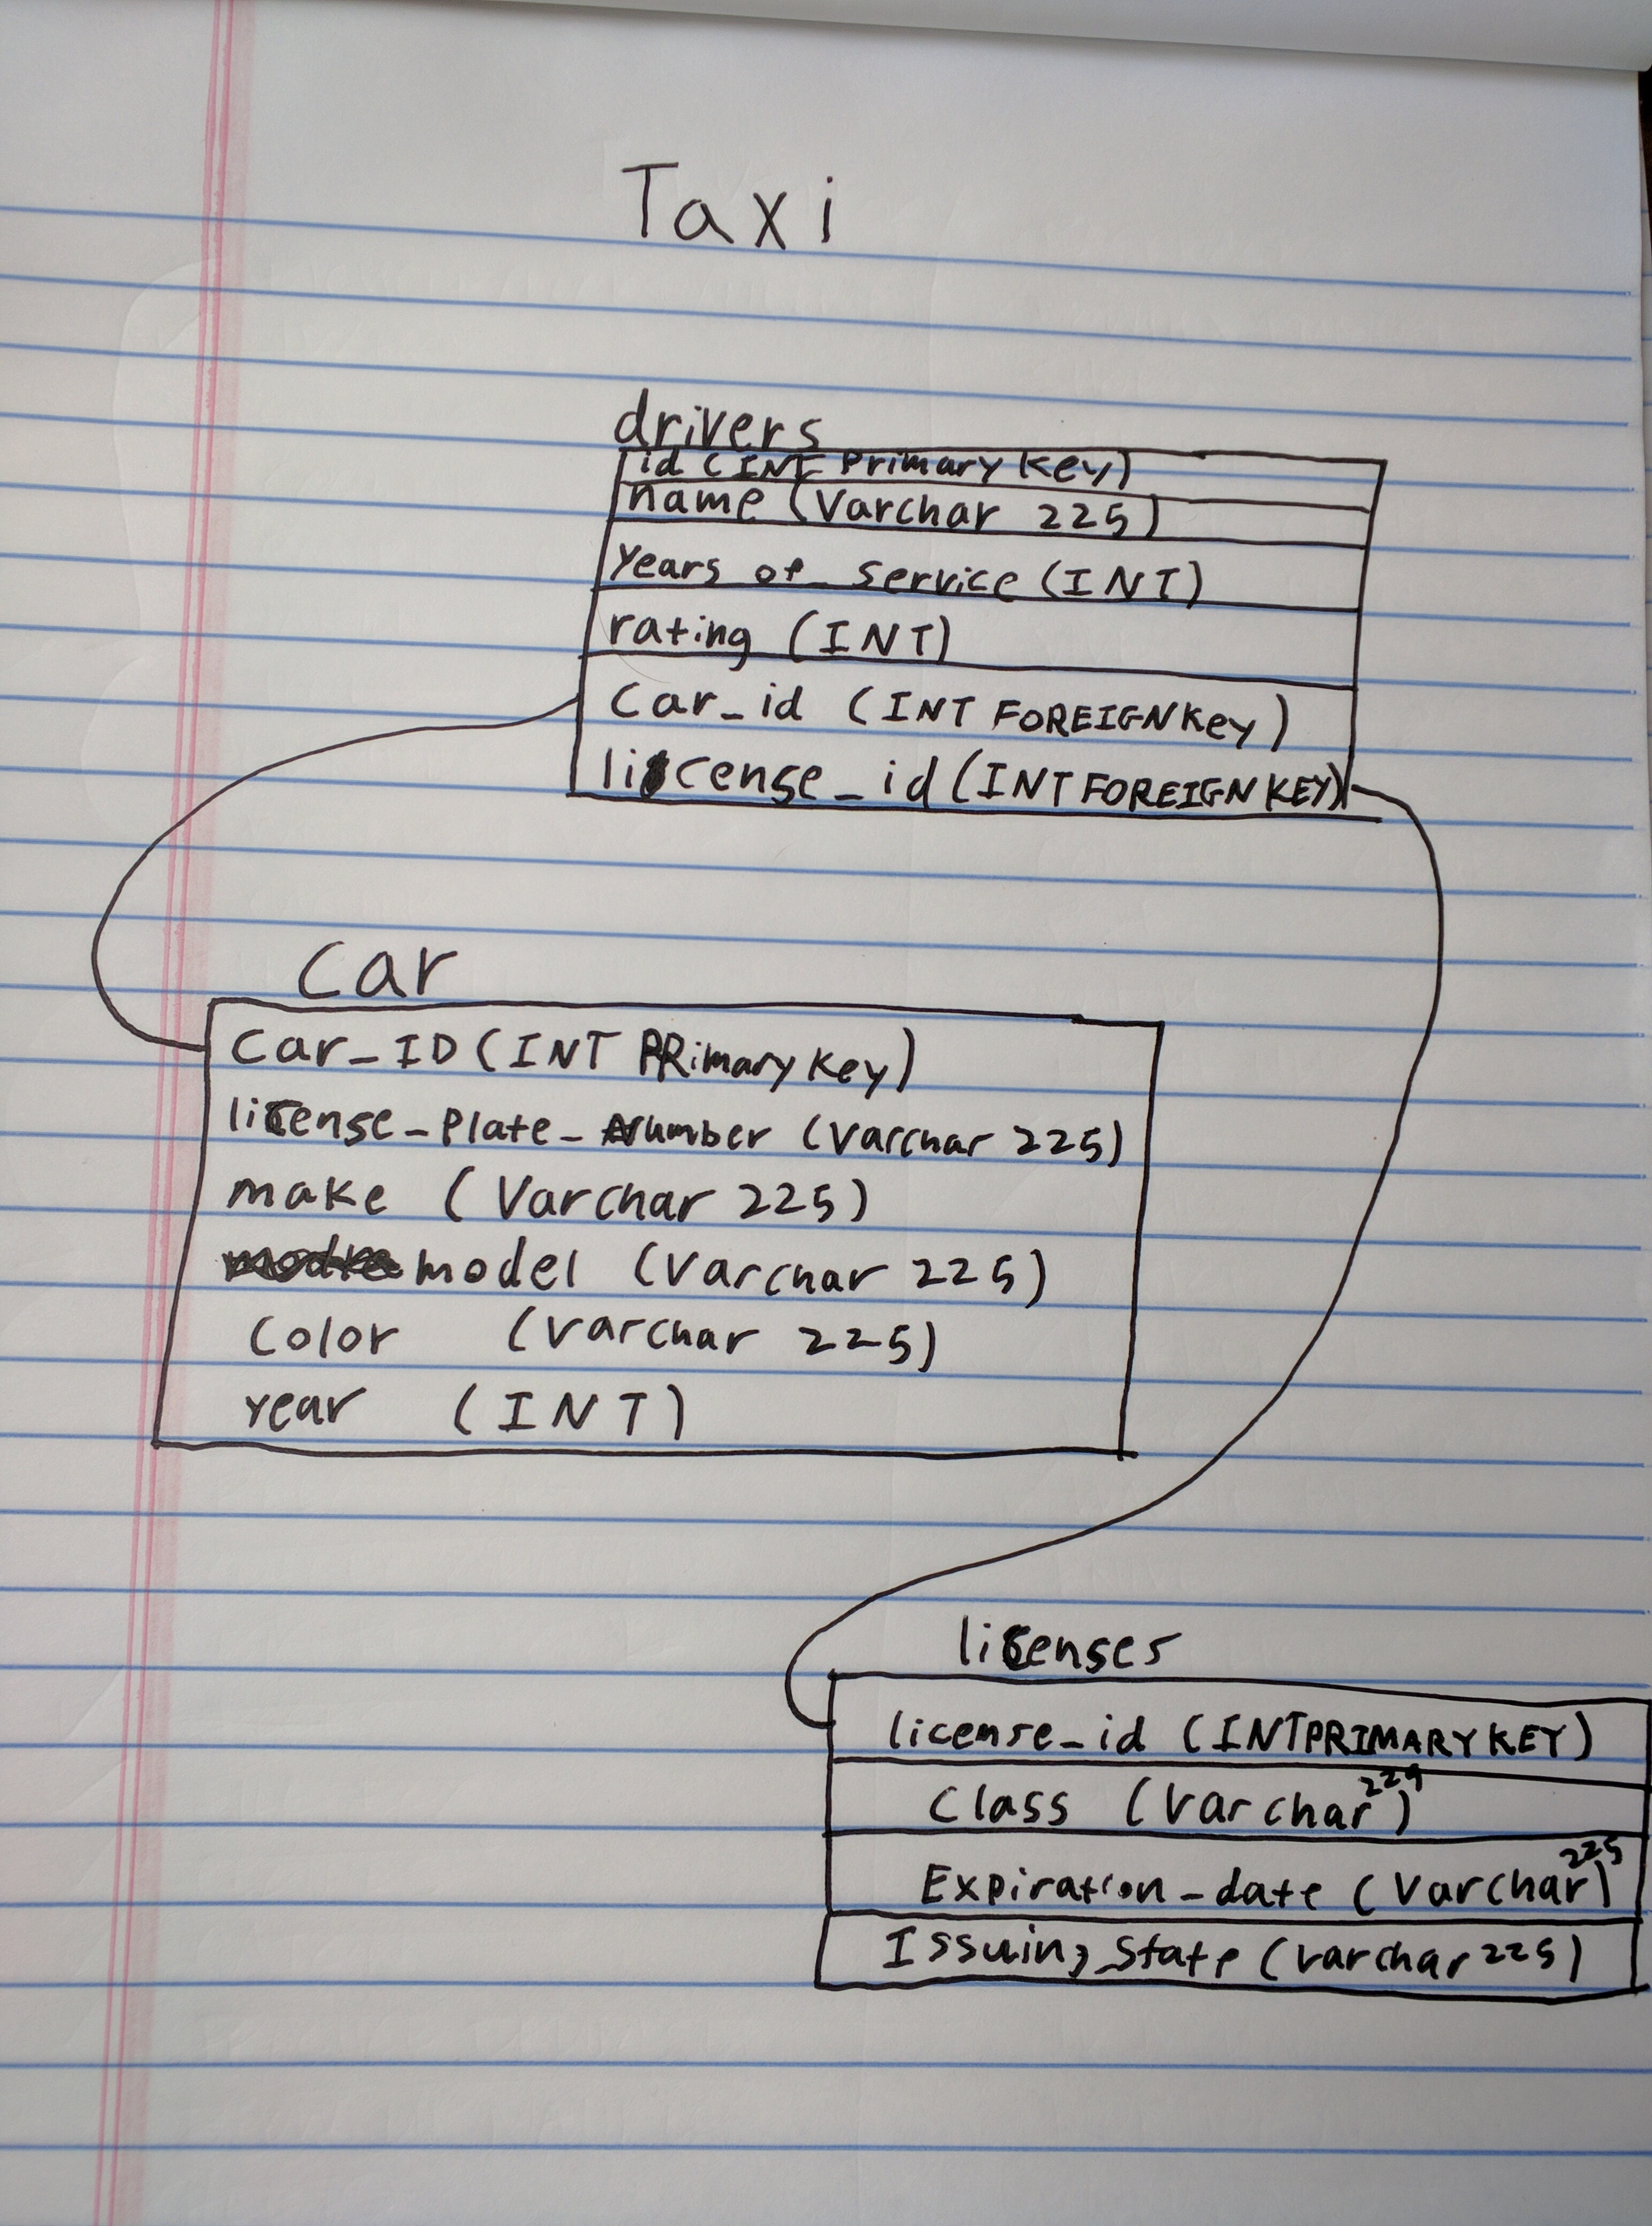 Taxi
drivers
id (INT Primary Key)
name (Varchar 225)
Years_of_service (INT)
rating (INT)
Car_id (INT FOREIGN Key)
license_id (INT FOREIGN KEY)
Car
Car_ID (INT PRimary Key)
license_Plate_Number (Varchar 225)
make (Varchar 225)
model (Varchar 225)
Color (Varchar 225)
Year (INT)
licenses
license_id (INT PRIMARY KEY)
Class (Varchar) 225
Expiration_date (Varchar) 225
Issuing_State (Varchar 225)